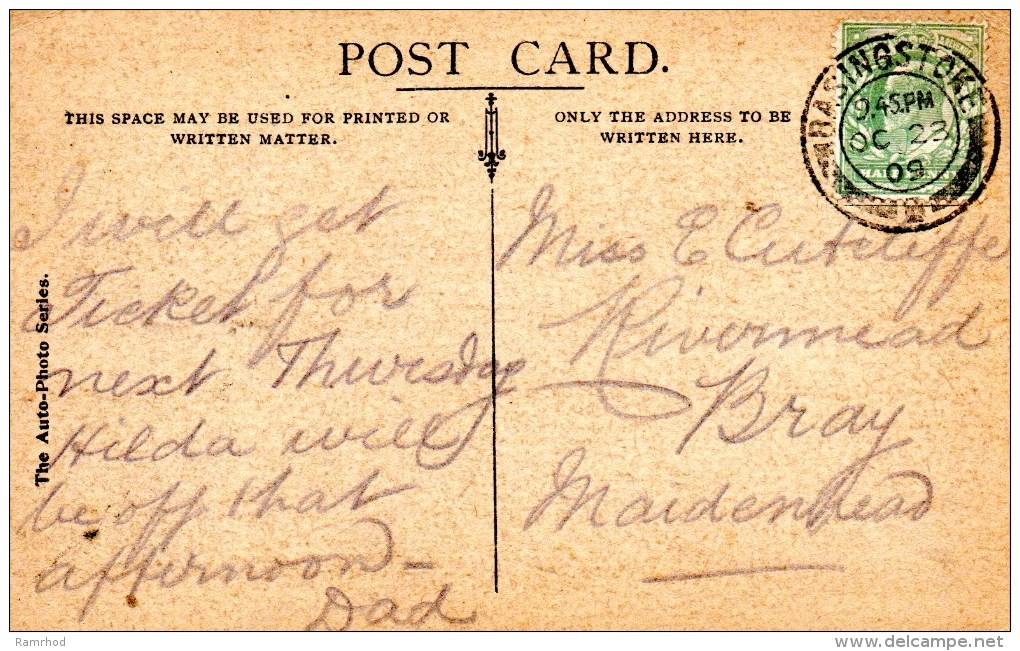 POST CARD.
THIS SPACE MAY BE USED FOR PRINTED OR
WRITTEN MATTER.
ONLY THE ADDRESS TO BE
WRITTEN HERE.
BASINGSTOKE
9.45.PM
OC 23
09
HALFPENNY
The Auto-Photo Series.
I will get
Ticket for
next Thursday
Hilda will
be off that
afternoon -
Dad
Miss E Cutcliffe
Rivermead
Bray
Maidenhead
Ramrhod
www.delcampe.net